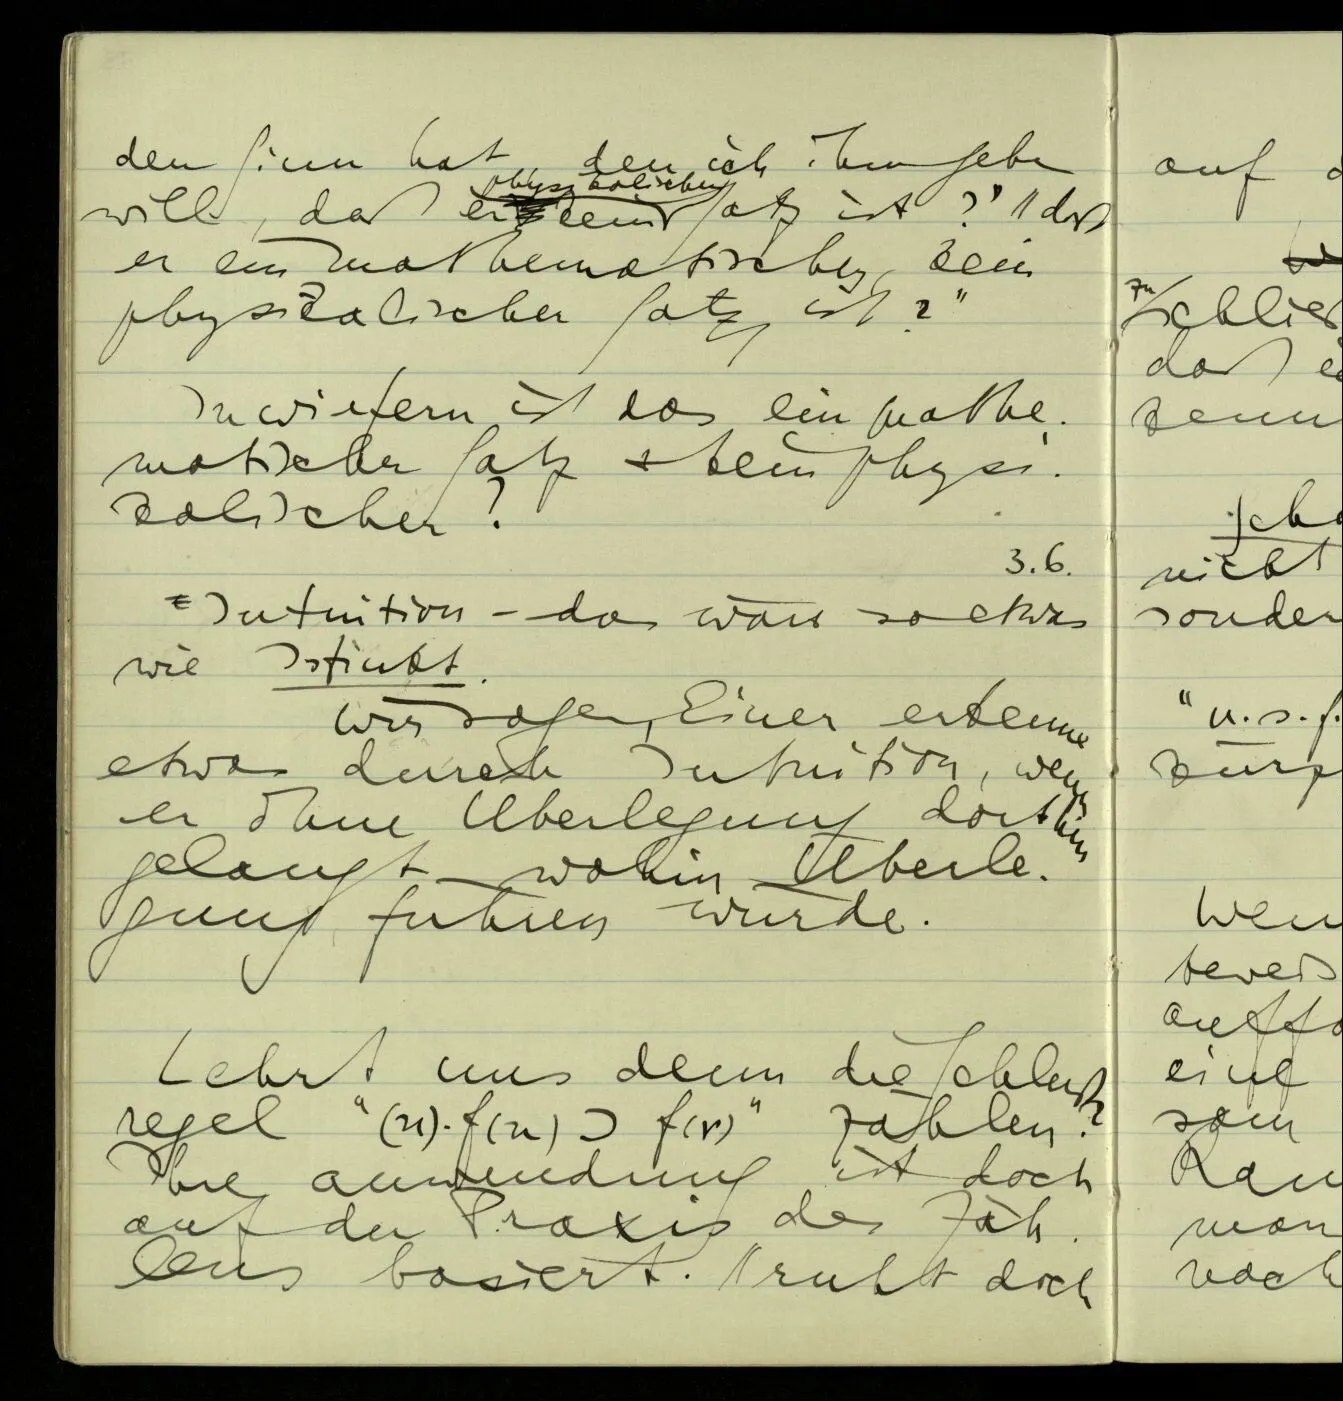 den Sinn hat, den ich ihm geben
physikalischer
will, daß er kein Satz ist?" || daß
er ein mathematischer, kein
physikalischer Satz, ist?"
Inwiefern ist das ein mathe-
matischer Satz & kein physi-
kalischer?
3.6.
Intuition – das wäre so etwas
wie Istinkt.
Wir sagen, Einer erkenne
etwas durch Intuition, wenn
er ohne Überlegung dorthin
gelangt wohin Überle-
gung führen würde.
Lehrt uns denn die Schluß-
regel "(x).f(x) ⊃ f(y)" zählen?
Ihre Anwendung ist doch
auf der Praxis des Zäh-
lens basiert. || ruht doch
auf
zu
schließ
daß
kenn
nicht
sonder
"u.s.f.
Wen
beweis
auffa
eine
kann
Kan
man
nach